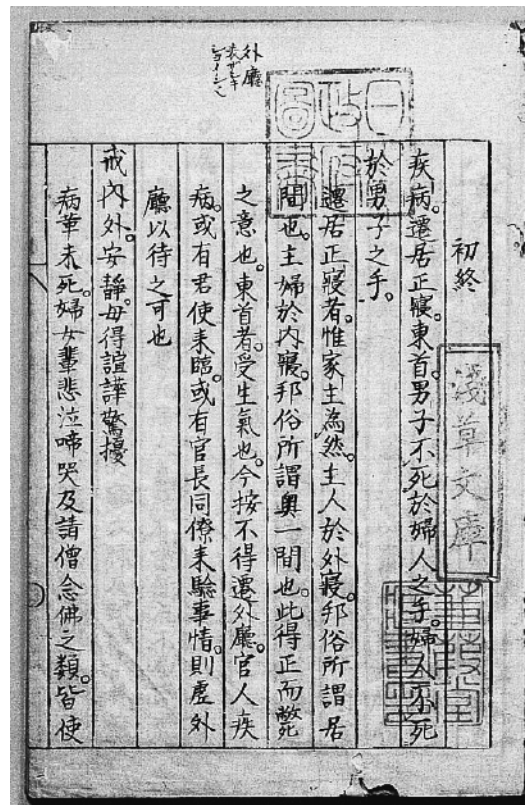 外廳
表ザシキ
初終
疾病。遷居正寢。東首。男子不死於婦人之手。婦人不死
於男子之手。
遷居正寢者。惟家主為然。主人於外寢。邦俗所謂居
間也。主婦於内寢。邦俗所謂奥一間也。此得正而斃
之意也。東首者。受生氣也。今按不得遷外廳。官人疾
病。或有君使来臨。或有官長同僚来驗事情。則虚外
廳以待之可也
戒内外。安靜。毋得諠譁驚擾
病革未死。婦女輩悲泣啼哭及請僧念佛之類。皆使
淺草文庫
日本政府圖書